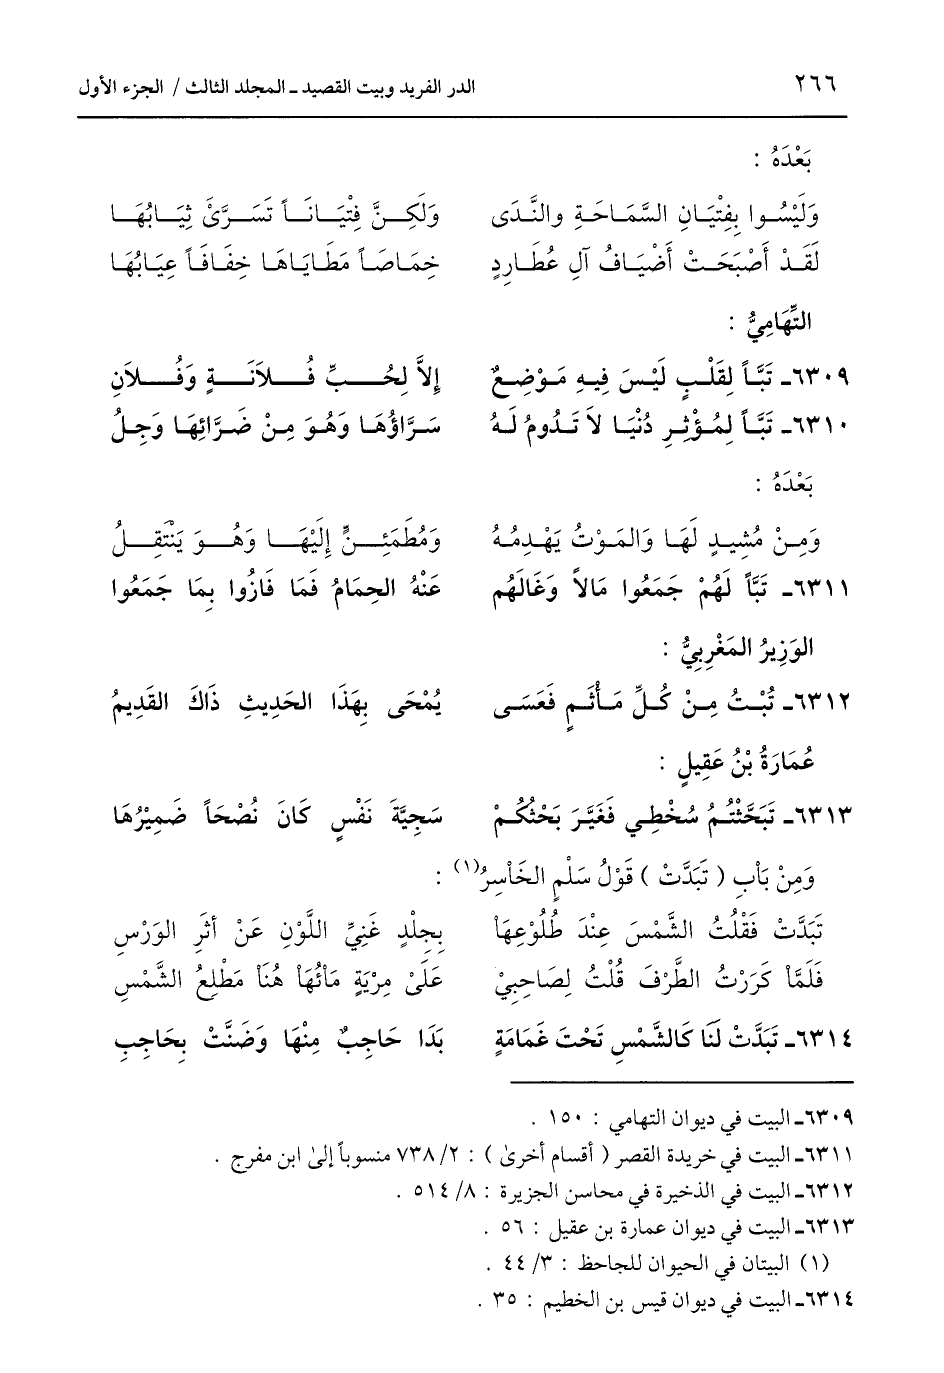 ٢٦٦ الدر الفريد وبيت القصيد ـ المجلد الثالث / الجزء الأول
بَعْدَهُ :
وَلَيْسُوا بِفِتْيَانِ السَّمَاحَةِ والنَّدَى وَلَكِنَّ فِتْيَانَاً تَسَرَّىْ ثِيَابُهَا
لَقَدْ أَصْبَحَتْ أَضْيَافُ آلِ عُطَارِدٍ خِمَاصَاً مَطَايَاهَا خِفَافَاً عِيَابُهَا
التِّهَامِيُّ :
٦٣٠٩ـ تَبَّاً لِقَلْبٍ لَيْسَ فِيهِ مَوْضِعٌ إِلاَّ لِحُبِّ فُلاَنَةٍ وَفُلاَنِ
٦٣١٠ـ تَبَّاً لِمُؤْثِرِ دُنْيَا لاَ تَدُومُ لَهُ سَرَّاؤُهَا وَهُوَ مِنْ ضَرَّائِهَا وَجِلُ
بَعْدَهُ :
وَمِنْ مُشِيدٍ لَهَا وَالمَوْتُ يَهْدِمُهُ وَمُطَمَئِنٍّ إِلَيْهَا وَهُوَ يَنْتَقِلُ
٦٣١١ـ تَبَّاً لَهُمْ جَمَعُوا مَالاً وَغَالَهُم عَنْهُ الحِمَامُ فَمَا فَازُوا بِمَا جَمَعُوا
الوَزِيرُ المَغْرِبِيُّ :
٦٣١٢ـ تُبْتُ مِنْ كُلِّ مَأْثَمٍ فَعَسَى يُمْحَى بِهَذَا الحَدِيثِ ذَاكَ القَدِيمُ
عُمَارَةُ بْنُ عَقِيلٍ :
٦٣١٣ـ تَبَحَّثْتُمُ سُخْطِي فَغَيَّرَ بَحْثُكُمْ سَجِيَّةَ نَفْسٍ كَانَ نُصْحَاً ضَمِيْرُهَا
وَمِنْ بَاْبِ ( تَبَدَّتْ ) قَوْلُ سَلْمٍ الخَاْسِرُ(١) :
تَبَدَّتْ فَقُلْتُ الشَّمْسَ عِنْدَ طُلُوْعِهَاْ بِجِلْدٍ غَنِيِّ اللَّوْنِ عَنْ أثَرِ الوَرْسِ
فَلَمَّاْ كَرَرْتُ الطَّرْفَ قُلْتُ لِصَاحِبِيْ عَلَىْ مِرْيَةٍ مَاْتُهَاْ هُنَاْ مَطْلِعُ الشَّمْسِ
٦٣١٤ـ تَبَدَّتْ لَنَا كَالشَّمْسِ تَحْتَ غَمَامَةٍ بَدَا حَاجِبٌ مِنْهَا وَضَنَّتْ بِحَاجِبِ
٦٣٠٩ـ البيت في ديوان التهامي : ١٥٠ .
٦٣١١ـ البيت في خريدة القصر ( أقسام أخرىٰ ) : ٢/ ٧٣٨ منسوباً إلىٰ ابن مفرج .
٦٣١٢ـ البيت في الذخيرة في محاسن الجزيرة : ٨/ ٥١٤ .
٦٣١٣ـ البيت في ديوان عمارة بن عقيل : ٥٦ .
(١) البيتان في الحيوان للجاحظ : ٣/ ٤٤ .
٦٣١٤ـ البيت في ديوان قيس بن الخطيم : ٣٥ .